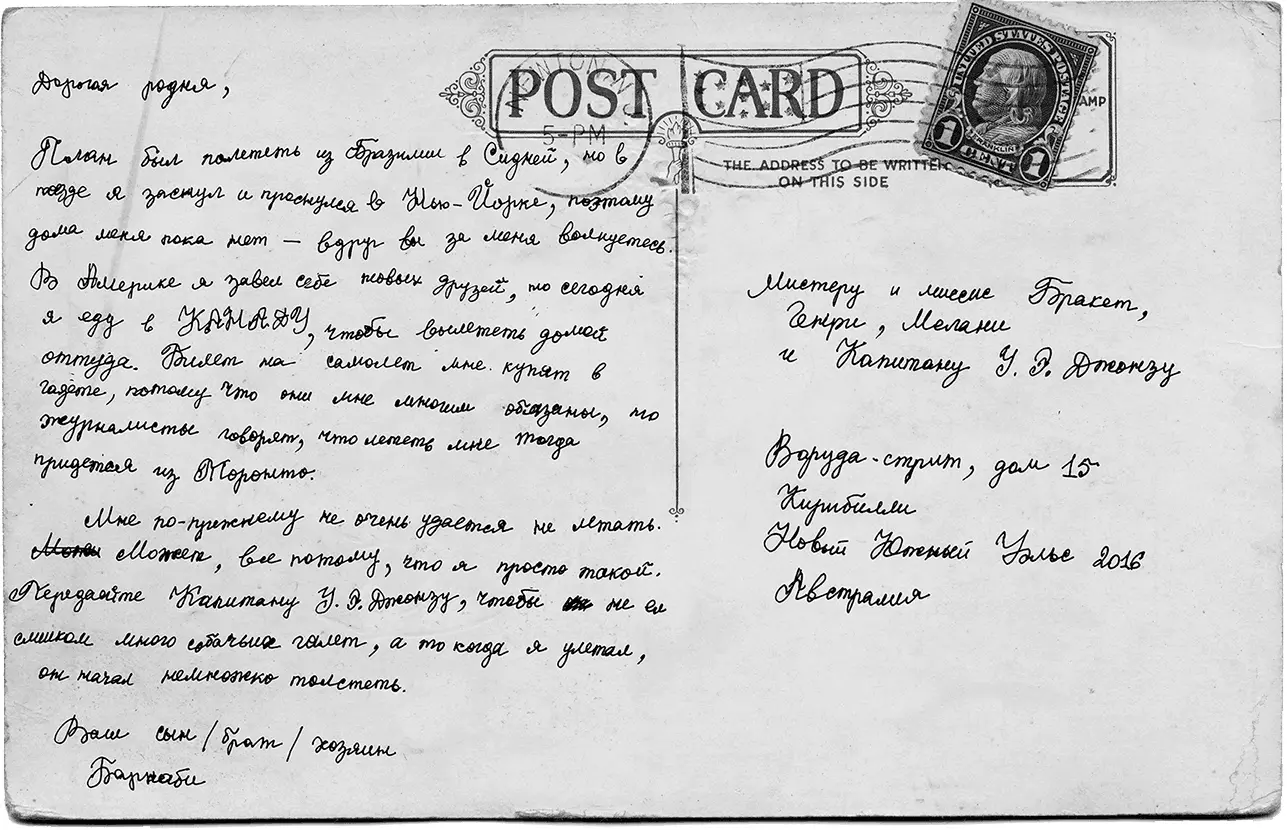 POST CARD
5-PM
UNITED STATES POSTAGE
FRANKLIN
1 CENT 1
AMP
THE ADDRESS TO BE WRITTEN
ON THIS SIDE
Дорогая родня,
План был полететь из Бразилии в Сидней, но в
поезде я заснул и проснулся в Нью-Йорке, поэтому
дома меня пока нет — вдруг вы за меня волнуетесь.
В Америке я завел себе новых друзей, но сегодня
я еду в КАНАДУ, чтобы вылететь домой
оттуда. Билет на самолет мне купят в
газете, потому что они мне многим обязаны, но
журналисты говорят, что лететь мне тогда
придется из Торонто.
Мне по-прежнему не очень удается не летать.
Может, все потому, что я просто такой.
Передайте Капитану У. Э. Джонзу, чтобы не ел
слишком много собачьих галет, а то когда я улетал,
он начал немножко толстеть.
Ваш сын / брат / хозяин
Барнаби
Мистеру и миссис Бракет,
Генри, Мелани
и Капитану У. Э. Джонзу
Варуда-стрит, дом 15
Кирибилли
Новый Южный Уэльс 2016
Австралия